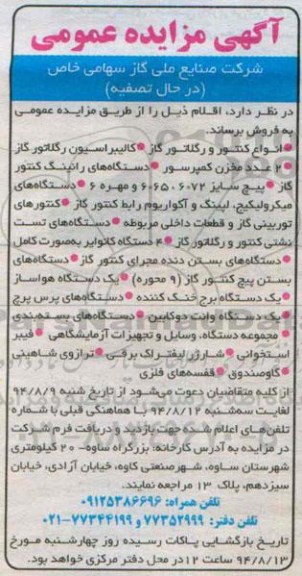 آگهی مزایده عمومی
شرکت صنایع ملی گاز سهامی خاص
(در حال تصفیه)
در نظر دارد، اقلام ذیل را از طریق مزایده عمومی
به فروش برساند.
●انواع کنتور و رگلاتور گاز ●کالیبراسیون رگلاتور گاز
●۲ عدد مخزن کمپرسور ●دستگاه‌های رانینگ کنتور
گاز ●پیچ سایز ۶۰۷۲ ، ۶۰۶۵ و مهره ۶ ●دستگاه‌های
میکرولیکیج، لیپنگ و آکواریوم رابط کنتور گاز ●کنتورهای
توربینی گاز و قطعات داخلی مربوطه ●دستگاه‌های تست
نشتی کنتور و رگلاتور گاز ●۴ دستگاه کانوایر به‌صورت کامل
●دستگاه‌های بستن دنده مجرای کنتور گاز ●دستگاه‌های
بستن پیچ کنتور گاز (۹ محوره) ●یک دستگاه هواساز
●یک دستگاه برج خنک کننده ●دستگاه‌های پرس پرچ
●یک دستگاه وانت دوکابین ●دستگاه‌های بسته‌بندی
●مجموعه دستگاه، وسایل و تجهیزات آزمایشگاهی ●فیبر
استخوانی ●شارژر لیفتراک برقی ●ترازوی شاهینی
●گاوصندوق ●قفسه‌های فلزی
از کلیه متقاضیان دعوت می‌شود از تاریخ شنبه ۹۴/۸/۹
لغایت سه‌شنبه ۹۴/۸/۱۲ با هماهنگی قبلی با شماره
تلفن‌های اعلام شده جهت بازدید و دریافت فرم شرکت
در مزایده به آدرس کارخانه: بزرگراه ساوه- ۲۰ کیلومتری
شهرستان ساوه، شهرصنعتی کاوه، خیابان آزادی، خیابان
سیزدهم، پلاک ۱۳ مراجعه نمایند.
تلفن همراه: ۰۹۱۲۵۳۸۶۶۹۶
تلفن دفتر: ۷۷۳۵۲۹۹۹ و ۷۷۳۴۴۱۹۹-۰۲۱
تاریخ بازگشایی پاکات رسیده روز چهارشنبه مورخ
۹۴/۸/۱۳ ساعت ۱۲ در محل دفتر مرکزی خواهد بود.